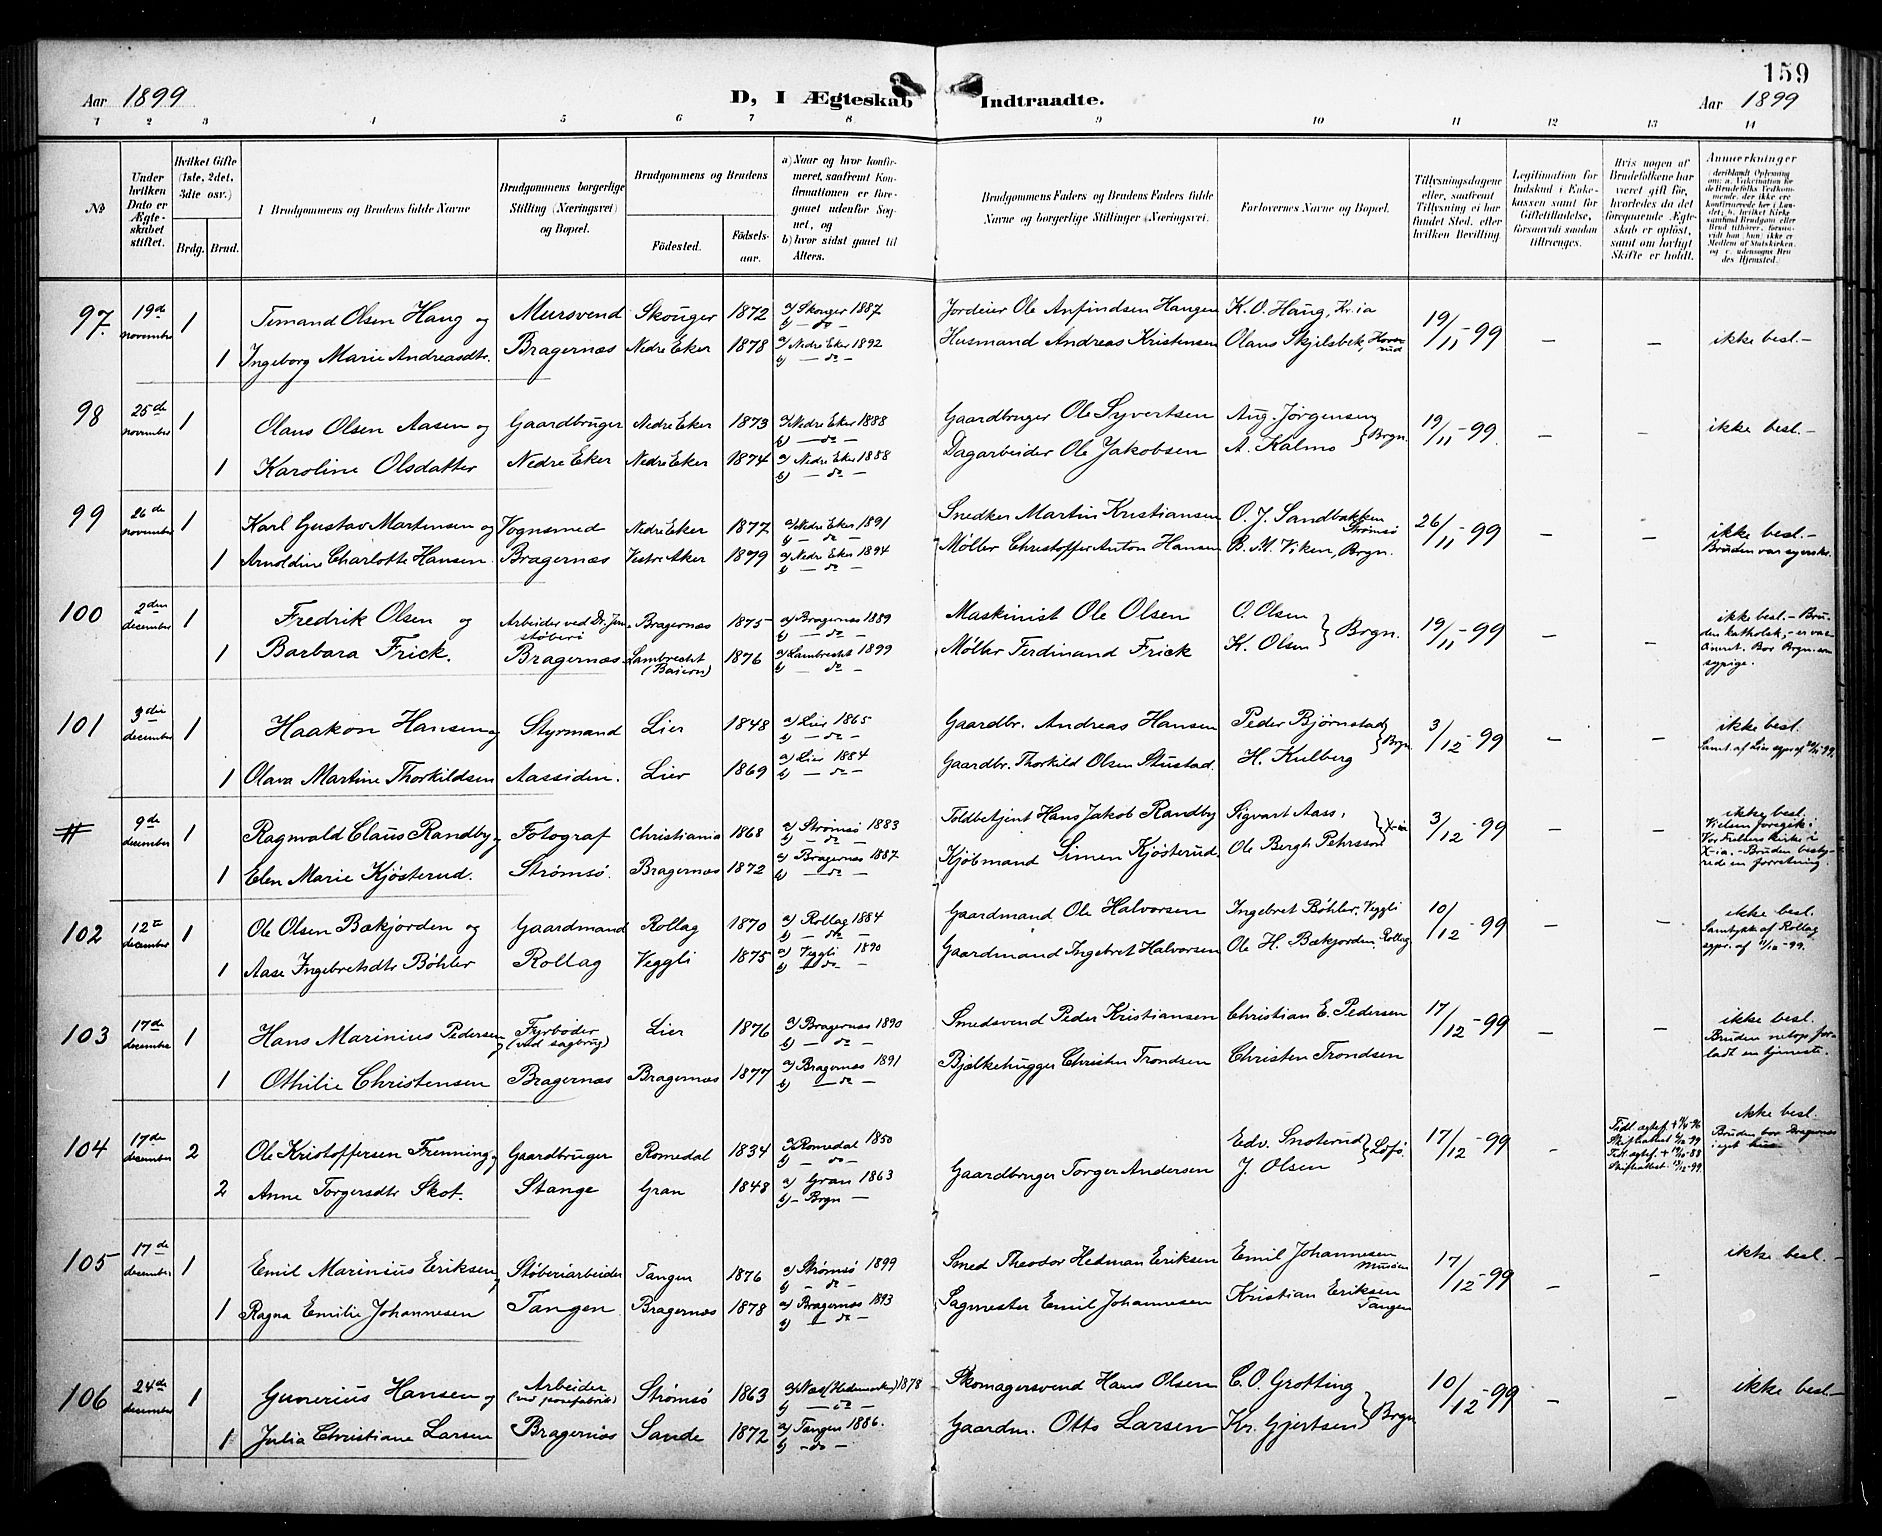 159
Aar 1899
D, I Ægteskab Indtraadte.
Aar 1899
1 2 3 4 5 6 7 8 9 10 11 12 13 14
No
Under hvilken Dato er Ægteskabet stiftet.
Hvilket Gifte (1ste, 2det, 3die osv.)
Brdg. Brud.
I Brudgommens og Brudens fulde Navne
Brudgommens borgerlige Stilling (Næringsvei) og Bopæl.
Brudgommens og Brudens
Fødested.
Fødselsaar.
a) Naar og hvor konfirmeret, saafremt Konfirmationen er foregaaet udenfor Sognet, og
b) hvor sidst gaaet til Alters.
Brudgommens Faders og Brudens Faders fulde Navne og borgerlige Stillinger (Næringsvei.
Forlovernes Navne og Bopæl.
Tillysningsdagene eller, saafremt Tillysning ei har fundet Sted, efter hvilken Bevilling
Legitimation for Indskud i Enkekassen samt for Giftetilladelse, forsaavidt saadan tiltrænges.
Hvis nogen af Brudefolkene har været gift før, hvorledes da det foregaaende Ægteskab er opløst, samt om lovligt Skifte er holdt.
Anmærkninger
97. 19de november 1 Temand Olsen Haug og Mursvend Skouger 1872 a) Skouger 1887 b) — do — Jordeier Ole Anfindsen Haugen K. O. Haug, Kr.ia 19/11-99 — — ikke besl. —
1 Ingeborg Marie Andreasdtr. Bragernæs Nedre Eker 1878 a) Nedre Eker 1892 b) — do — Husmand Andreas Kristensen Olaus Skjelsbek,
98 25de november 1 Olaus Olsen Aasen og Gaardbruger Nedre Eker 1873 a) Nedre Eker 1888 b) — do — Gaardbruger Ole Syvertsen Aug. Jørgensen 19/11-99 — — ikke besl. —
1 Karoline Olsdatter Nedre Eker Nedre Eker 1874 a) Nedre Eker 1888 b) — do — Dagarbeider Ole Jakobsen A. Kalmo } Brgn.
99 26de november 1 Karl Gustav Martinsen og Vognsmed Nedre Eker 1877 a) Nedre Eker 1891 b) — do — Snedker Martin Kristiansen O. J. Sandbakken Strømsø 26/11-99 — — ikke besl. —
1 Arnoldine Charlotte Hansen. Bragernæs Vestre Aker 1879 a) Nedre Eker 1894 b) — do — Møller Christoffer Anton Hansen B. M. Viken, Brgn. Bruden var syerske.
100 2den december 1 Fredrik Olsen og Arbeider ved Dr. Jernstøberi Bragernæs 1875 a) Bragernæs 1889 b) — do — Maskinist Ole Olsen O. Olsen 19/11-99 — — ikke besl. — Bruden katholsk,
1 Barbara Frick. Bragernæs Lambrecht (Baiern) 1876 a) Lambrecht 1899 b) do — Møller Ferdinand Frick K. Olsen } Brgn. Bor Brgn. som sypige.
101 3die december 1 Haakon Hansen og Styrmand Lier 1848 a) Lier 1865 b) — do — Gaardbr. Andreas Hansen Peder Bjørnstad 3/12-99 — — ikke besl.
1 Olava Martine Thorkildsen Aassiden. Lier 1869 a) Lier 1884 b) — do — Gaardbr. Thorkild Olsen Stustad. H. Kulberg } Brgn.
# 9de december 1 Ragnvald Claus Randby og Fotograf Christiania 1868 a) Strømsø 1883 b) — do — Toldbetjent Hans Jakob Randby Sigvart Aass, 3/12-99 — — ikke besl. Vielsen foregik i Vor Frelsers kirke i X-ia. — Bruden bestyrede en forretning.
1 Elen Marie Kjøsterud. Strømsø. Bragernæs 1872 a) Bragernæs 1887 b) — do — Kjøbmand Simen Kjøsterud. Ole Bergh Pehrsson } X-ia
102 12te december 1 Ole Olsen Bækjorden og Gaardmand Rollag 1870 a) Rollag 1884 b) — do — Gaardmand Ole Halvorsen Ingebret Bøhler, Veggli 10/12-99 — — ikke besl. Samtykke af Rollag
1 Aase Ingebretsdtr Bøhler Rollag Veggli 1875 a) Veggli 1890 b) — do — Gaardmand Ingebret Halvorsen Ole H. Bækjorden, Rollag
103 17de december 1 Hans Marinius Pedersen og Fyrbøder (ved sagbrug) Lier 1876 a) Bragernæs 1890 b) — do — Smedsvend Peder Kristiansen Christian E. Pedersen 17/12-99 — — ikke besl. Bruden netop forladt en tjeneste.
1 Othilie Christensen Bragernæs Bragernæs 1877 a) Bragernæs 1891 b) — do — Bjelkehugger Christen Trondsen Christen Trondsen
104 17de december 2 Ole Kristoffersen Frenning og Gaardbruger Romedal 1834 a) Romedal 1850 b) — do — Edv. Snoterud 17/12-99 — ikke besl. Bruden bor Bragernæs i eget hus
2 Anne Torgersdtr Skot. Stange Gran 1848 a) Gran 1863 b) — Brgn — Gaardbruger Torger Andersen J. Olsen
105 17de december 1 Emil Marinius Eriksen og Støberiarbeider Tangen 1876 a) Strømsø 1899 b) — do — Smed Theodor Hedman Eriksen Emil Johannesen 17/12-99 — — ikke besl. —
1 Ragna Emilie Johannesen Tangen Bragernæs 1878 a) Bragernæs 1893 b) — do — Sagmester Emil Johannesen Kristian Eriksen Tangen
106 24de december 1 Gunerius Hansen og Arbeider (ved posefabrik) Strømsø 1863 a) Næs (Hedemarken) 1878 b) — do — Skomagersvend Hans Olsen C. O. Grotting 10/12-99 — — ikke besl. —
1 Julia Christiane Larsen Bragernæs Sande 1872 a) Tangen 1886. b) — do — Gaardm. Otto Larsen Kr. Gjertsen } Brgn